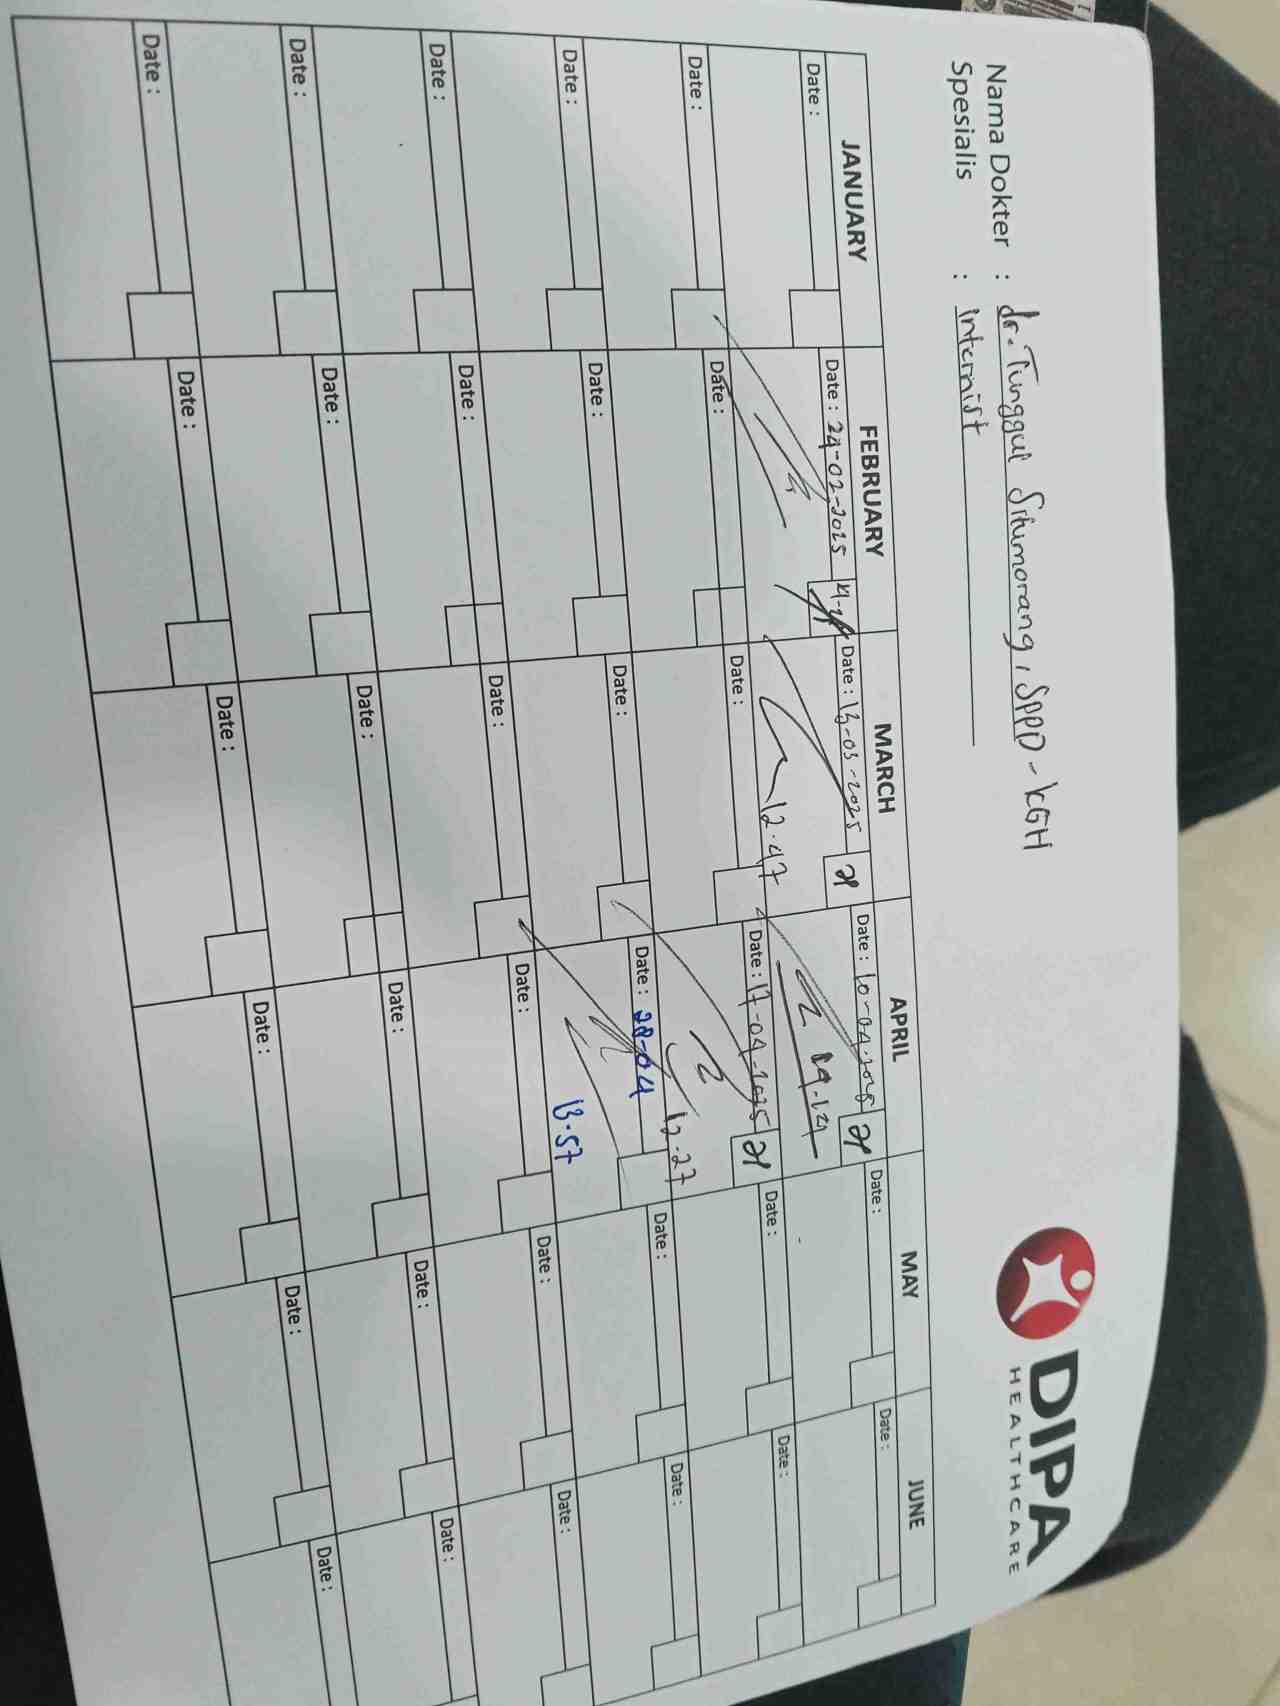 Nama Dokter : dr. Tunggul Situmorang, SPPD-KGH
Spesialis : Internist
DIPA
HEALTHCARE
JANUARY FEBRUARY MARCH APRIL MAY JUNE
Date : Date : 24-02-2025 Date : 13-03-2025 Date : 10-04-2025 Date : Date :
12.47
Date : Date : Date : Date : 17-04-2025 Date : Date :
12.27
Date : Date : Date : Date : 28-04 Date : Date :
13.57
Date : Date : Date : Date : Date : Date :
Date : Date : Date : Date : Date : Date :
Date : Date : Date : Date : Date : Date :